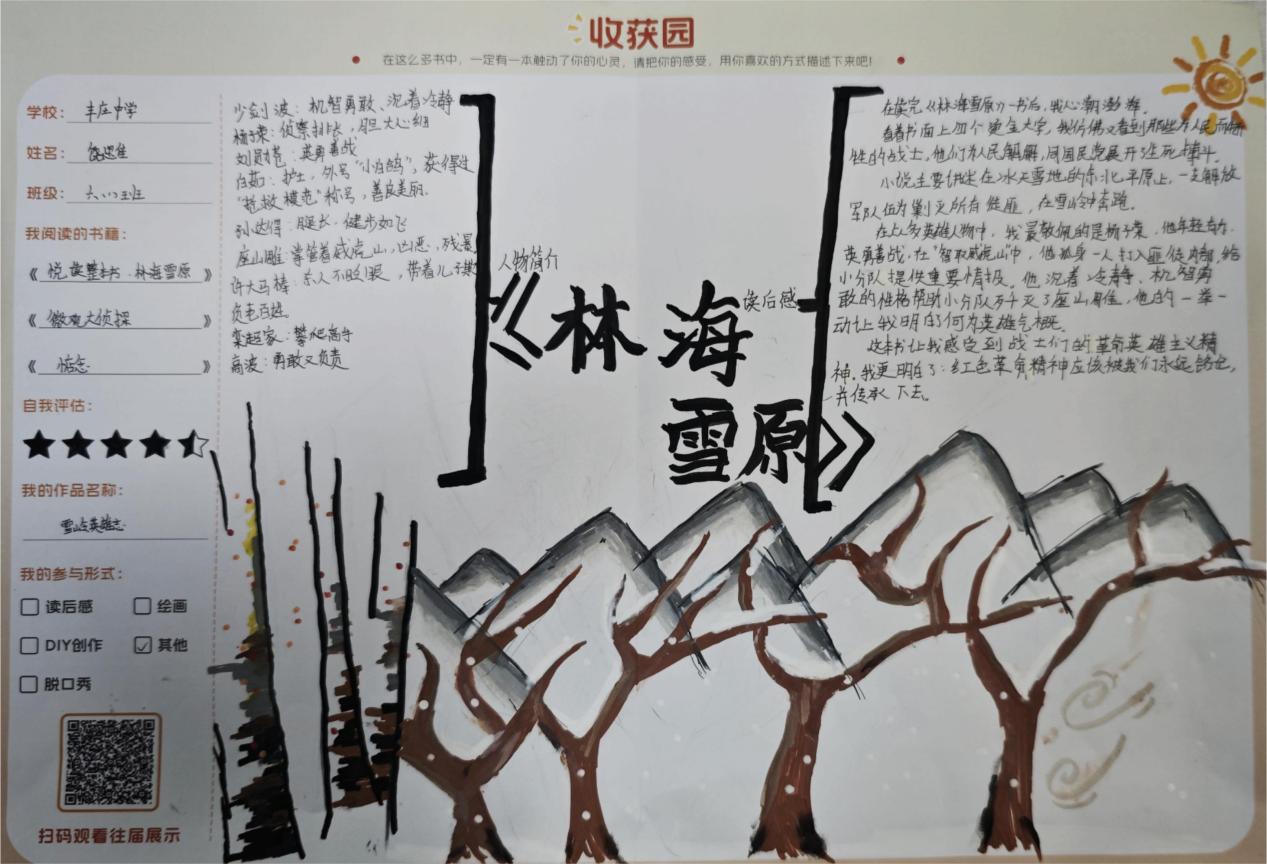 收获园
在这么多书中，一定有一本触动了你的心灵，请把你的感受，用你喜欢的方式描述下来吧!
学校： 丰庄中学
姓名：
班级：
我阅读的书籍：
《 悦读整本书·林海雪原 》
《 微观大侦探 》
《 惦念 》
自我评估：
我的作品名称：
雪岭英雄志
我的参与形式：
读后感 绘画
DIY创作 其他
脱口秀
扫码观看往届展示
少剑波：机智勇敢、沉着冷静
杨子荣：侦察排长，胆大心细
刘勋苍：英勇善战
白茹：护士，外号“小白鸽”，获得过
“抢救模范”称号，善良美丽.
孙达得：腿长·健步如飞
座山雕：掌管着威虎山，凶恶，残暴
许大马棒：杀人不眨眼，带着儿子
栾超家：攀爬高手
高波：勇敢又负责
人物简介
《林海
雪原》
读后感
在读完《林海雪原》一书后，我心潮澎湃.
看着书面上四个烫金大字，我仿佛又看到那些为人民而牺
牲的战士，他们为人民解放，同国民党展开了生死搏斗.
小说主要讲述在冰天雪地的东北平原上，一支解放
军队伍为剿灭所有匪，在雪岭中奔跑.
在众多英雄人物中，我最敬佩的是杨子荣，他年轻有为，
英勇善战.在“智取威虎山”中，他孤身一人打入匪徒内部，给
小分队提供重要情报。他沉着冷静、机智勇
敢的性格帮助小分队歼灭了座山雕，他的一举一
动让我明白了何为英雄气概。
这本书让我感受到战士们的革命英雄主义精
神.我更明白了：红色革命精神应该被我们永远铭记，
并传承下去。